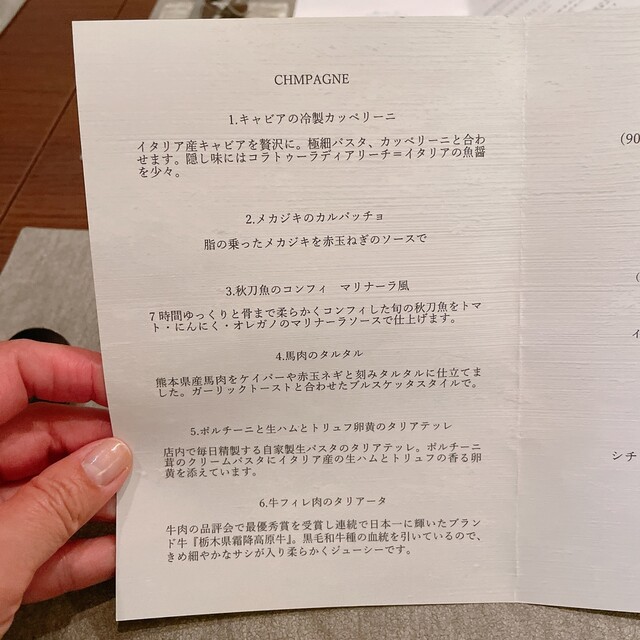 CHMPAGNE
1.キャビアの冷製カッペリーニ
イタリア産キャビアを贅沢に。極細パスタ、カッペリーニと合わ
せます。隠し味にはコラトゥーラディアリーチ＝イタリアの魚醤
を少々。
2.メカジキのカルパッチョ
脂の乗ったメカジキを赤玉ねぎのソースで
3.秋刀魚のコンフィ　マリナーラ風
7時間ゆっくりと骨まで柔らかくコンフィした旬の秋刀魚をトマ
ト・にんにく・オレガノのマリナーラソースで仕上げます。
4.馬肉のタルタル
熊本県産馬肉をケイパーや赤玉ネギと刻みタルタルに仕立てま
した。ガーリックトーストと合わせたブルスケッタスタイルで。
5.ポルチーニと生ハムとトリュフ卵黄のタリアテッレ
店内で毎日精製する自家製生パスタのタリアテッレ。ポルチーニ
茸のクリームパスタにイタリア産の生ハムとトリュフの香る卵
黄を添えています。
6.牛フィレ肉のタリアータ
牛肉の品評会で最優秀賞を受賞し連続で日本一に輝いたブラン
ド牛『栃木県霜降高原牛』。黒毛和牛種の血統を引いているので、
きめ細やかなサシが入り柔らかくジューシーです。
(90
(
イ
シチ